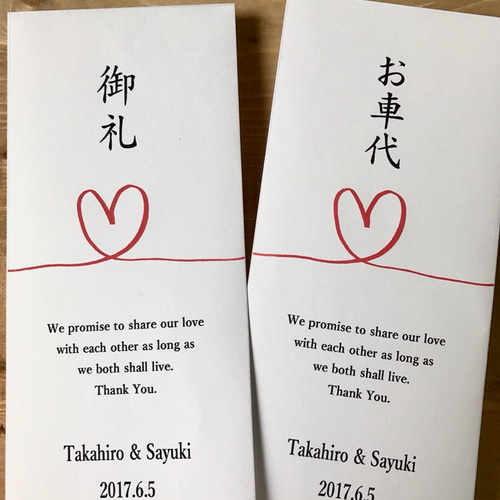 御礼
We promise to share our love
with each other as long as
we both shall live.
Thank You.
Takahiro & Sayuki
2017.6.5
お車代
We promise to share our love
with each other as long as
we both shall live.
Thank You.
Takahiro & Sayuki
2017.6.5